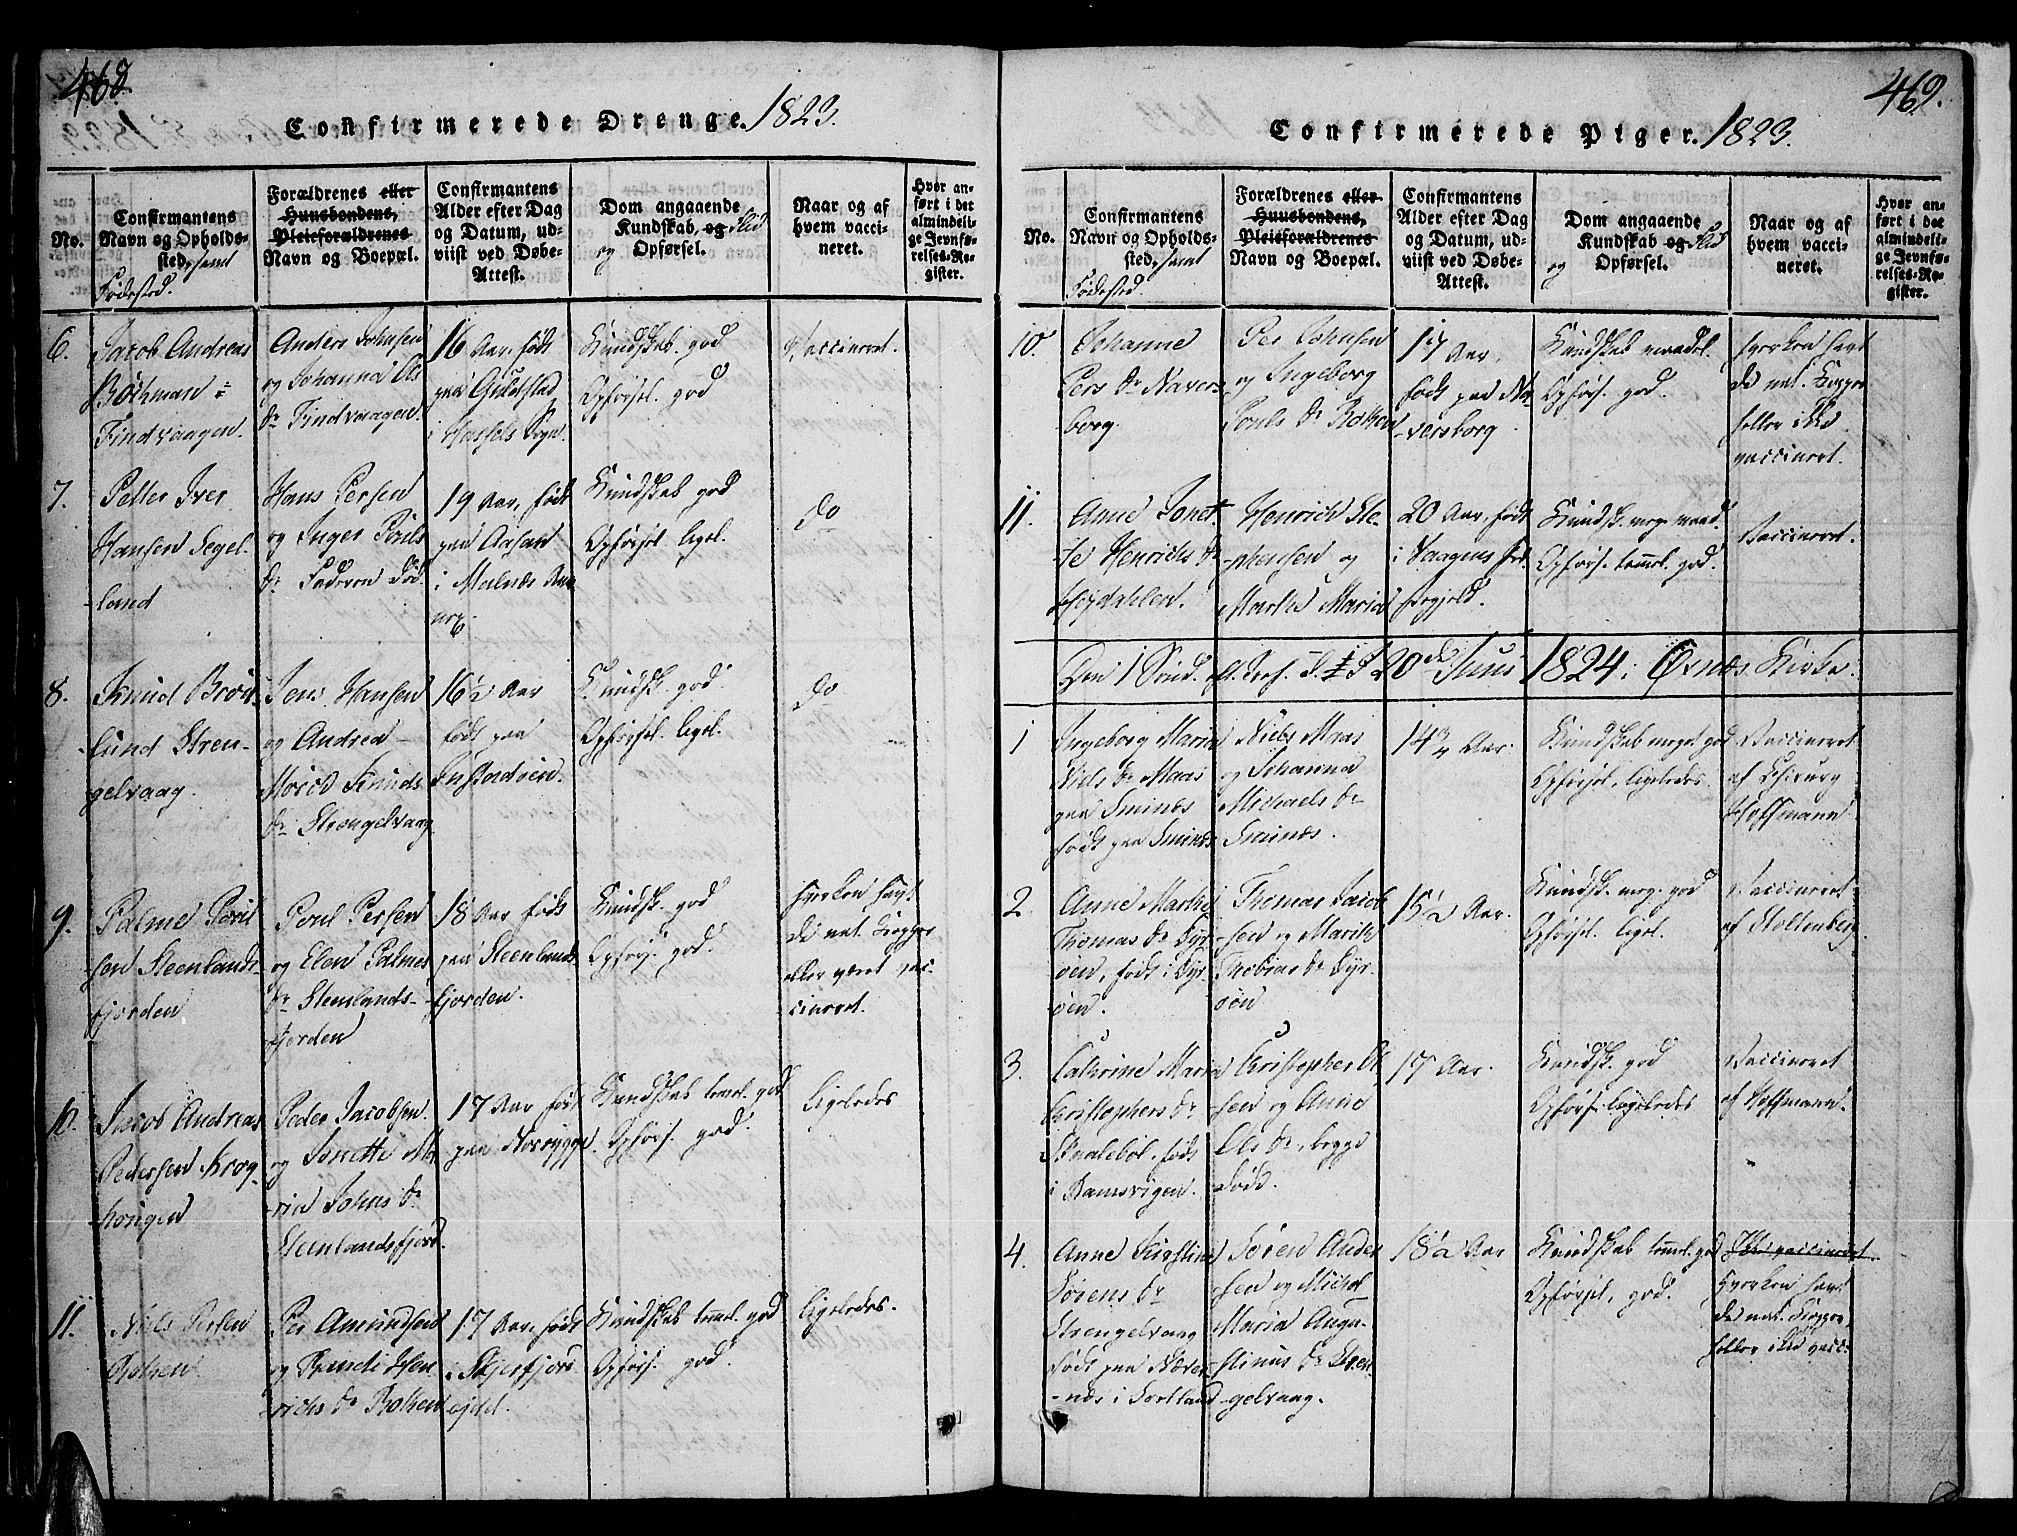 468.
Confirmerede Drenge. 1823.
No.
Confirmantens
Navn og Opholds-
sted, samt
Fødested.
Forældrenes eller
Huusbondens,
Pleieforældrenes
Navn og Boepæl.
Confirmantens
Alder efter Dag
og Datum, ud-
viist ved Døbe-
Attest.
Dom angaaende
Kundskab, og Flid
og Opførsel.
Naar og af
hvem vacci-
neret.
Hvor an-
ført i det
almindeli-
ge Jevnfø-
relses-Re-
gister.
6.
Jacob Andreas
Bothman
Findvaagen.
Anders Johnsen
og Johanna Ols
Dr Findvaagen.
16 Aar, født
paa Guldstad
i Hassels Sogn.
Kundskab god
Opførsel god
Vaccineret.
7.
Petter Iver
Hansen Segel-
land
Hans Persen
og Inger Pouls
Dr Faderen død.
19 Aar, født
paa Aasan
i Malnæs
Kundskab god
Opførsel ligel.
do
8.
Knud
lund Stren-
gelvaag.
Jens Hansen
og Andrea
Knuds
Dr Strengelvaag
16½ Aar
født paa
Kundsk. god.
Opførsel. ligel.
do
9.
Palme Poul
sen Steenlands-
fjorden
Poul Persen
og Elen Palmes
Dr Steenlands-
fjorden
18 Aar født
paa Steenlands-
fjorden.
Kundsk. god
Opførs. god.
Hverken havt
de nat. Kopper
eller været vac-
cineret.
10.
Jacob Andreas
Pedersen Krog-
Peder Jacobsen
og Jonette Ma
ria Johns Dr
Steenlandsfjord.
17 Aar født
paa
Kundskab temel. god
Opførs. god.
Ligeledes
11.
Niels Persen
Per Amundsen
og Randi Hen
richs Dr
17 Aar, født
i Skjerfjord
Kundskab temel. god
Opførs. god.
Ligeledes.
469.
Confirmerede Piger. 1823.
No.
Confirmantens
Navn og Opholds-
sted, samt
Fødested.
Forældrenes eller
Huusbondens,
Pleieforældrenes
Navn og Boepæl.
Confirmantens
Alder efter Dag
og Datum, ud-
viist ved Døbe-
Attest.
Dom angaaende
Kundskab og Flid
og Opførsel.
Naar og af
hvem vacci-
neret.
Hvor an-
ført i det
almindeli-
ge Jevnfø-
relses-Re-
gister.
10.
Johanne
Pers Dr Navers-
borg.
Per Johnsen
og Ingeborg
Pouls Dr
17 Aar,
født paa Na-
versborg
Kundskab maadel.
Opførs. god.
Hverken havt
de nat. Kopper
heller ikke
vaccineret.
11.
Anne Jonet-
te Henrichs Dr
Høydahlen.
Henrich Ste-
phensen og
Marthe Maria
20 Aar, født
i Vaagens Præ-
stegjeld.
Kundsk. meg. maad.
Opførs. temel. god.
Vaccineret
Den 1 Sønd. 20de Juni 1824 i Øxnæs Kirke.
1
Ingeborg Maria
Niels Dr Maas
paa Smines
født paa Smines
Niels Maas
og Johanna
Michaels Dr
Smines.
14¾ Aar.
Kundskab meget god
Opførsel. ligeledes.
Vaccineret
af Chirurg
Hoffmann
2
Anne Marthe
Thomas Dr Dyr-
øen, født i Dyr-
øen.
Thomas Jacob
sen og Marith
Thobias Dr Dyr-
øen
15½ Aar.
Kundsk. meg. god
Opførsel. ligel.
Vaccineret
af Stoltenberg.
3.
Cathrine Maria
Christophers Dr
Skalebol. født
i Ramsvigen.
Christopher Ol
sen og Anne
Ols Dr, begge
døde.
17 Aar.
Kundsk. god
Opførs. ligeledes
Vaccineret
af Hoffmann.
4.
Anne Kirstine
Sørens Dr
Strengelvaag
født paa
i Sortland
Søren Ander
sen og Michel
Maria Augu-
stinus Dr Stren
gelvaag.
18½ Aar
Kundskab temel. god
Opførsel. god.
Ikke vaccineret
Hverken havt
de nat. Kopper,
heller ikke vacc.